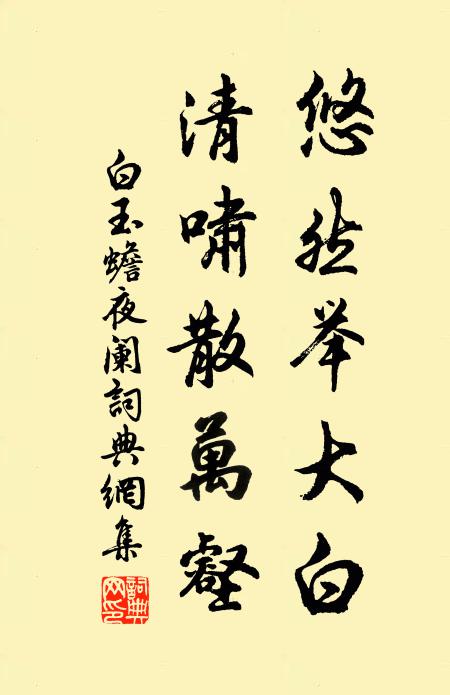 悠然举大白
清嘯散萬壑
白玉蟾夜阑詞典網集
詞典